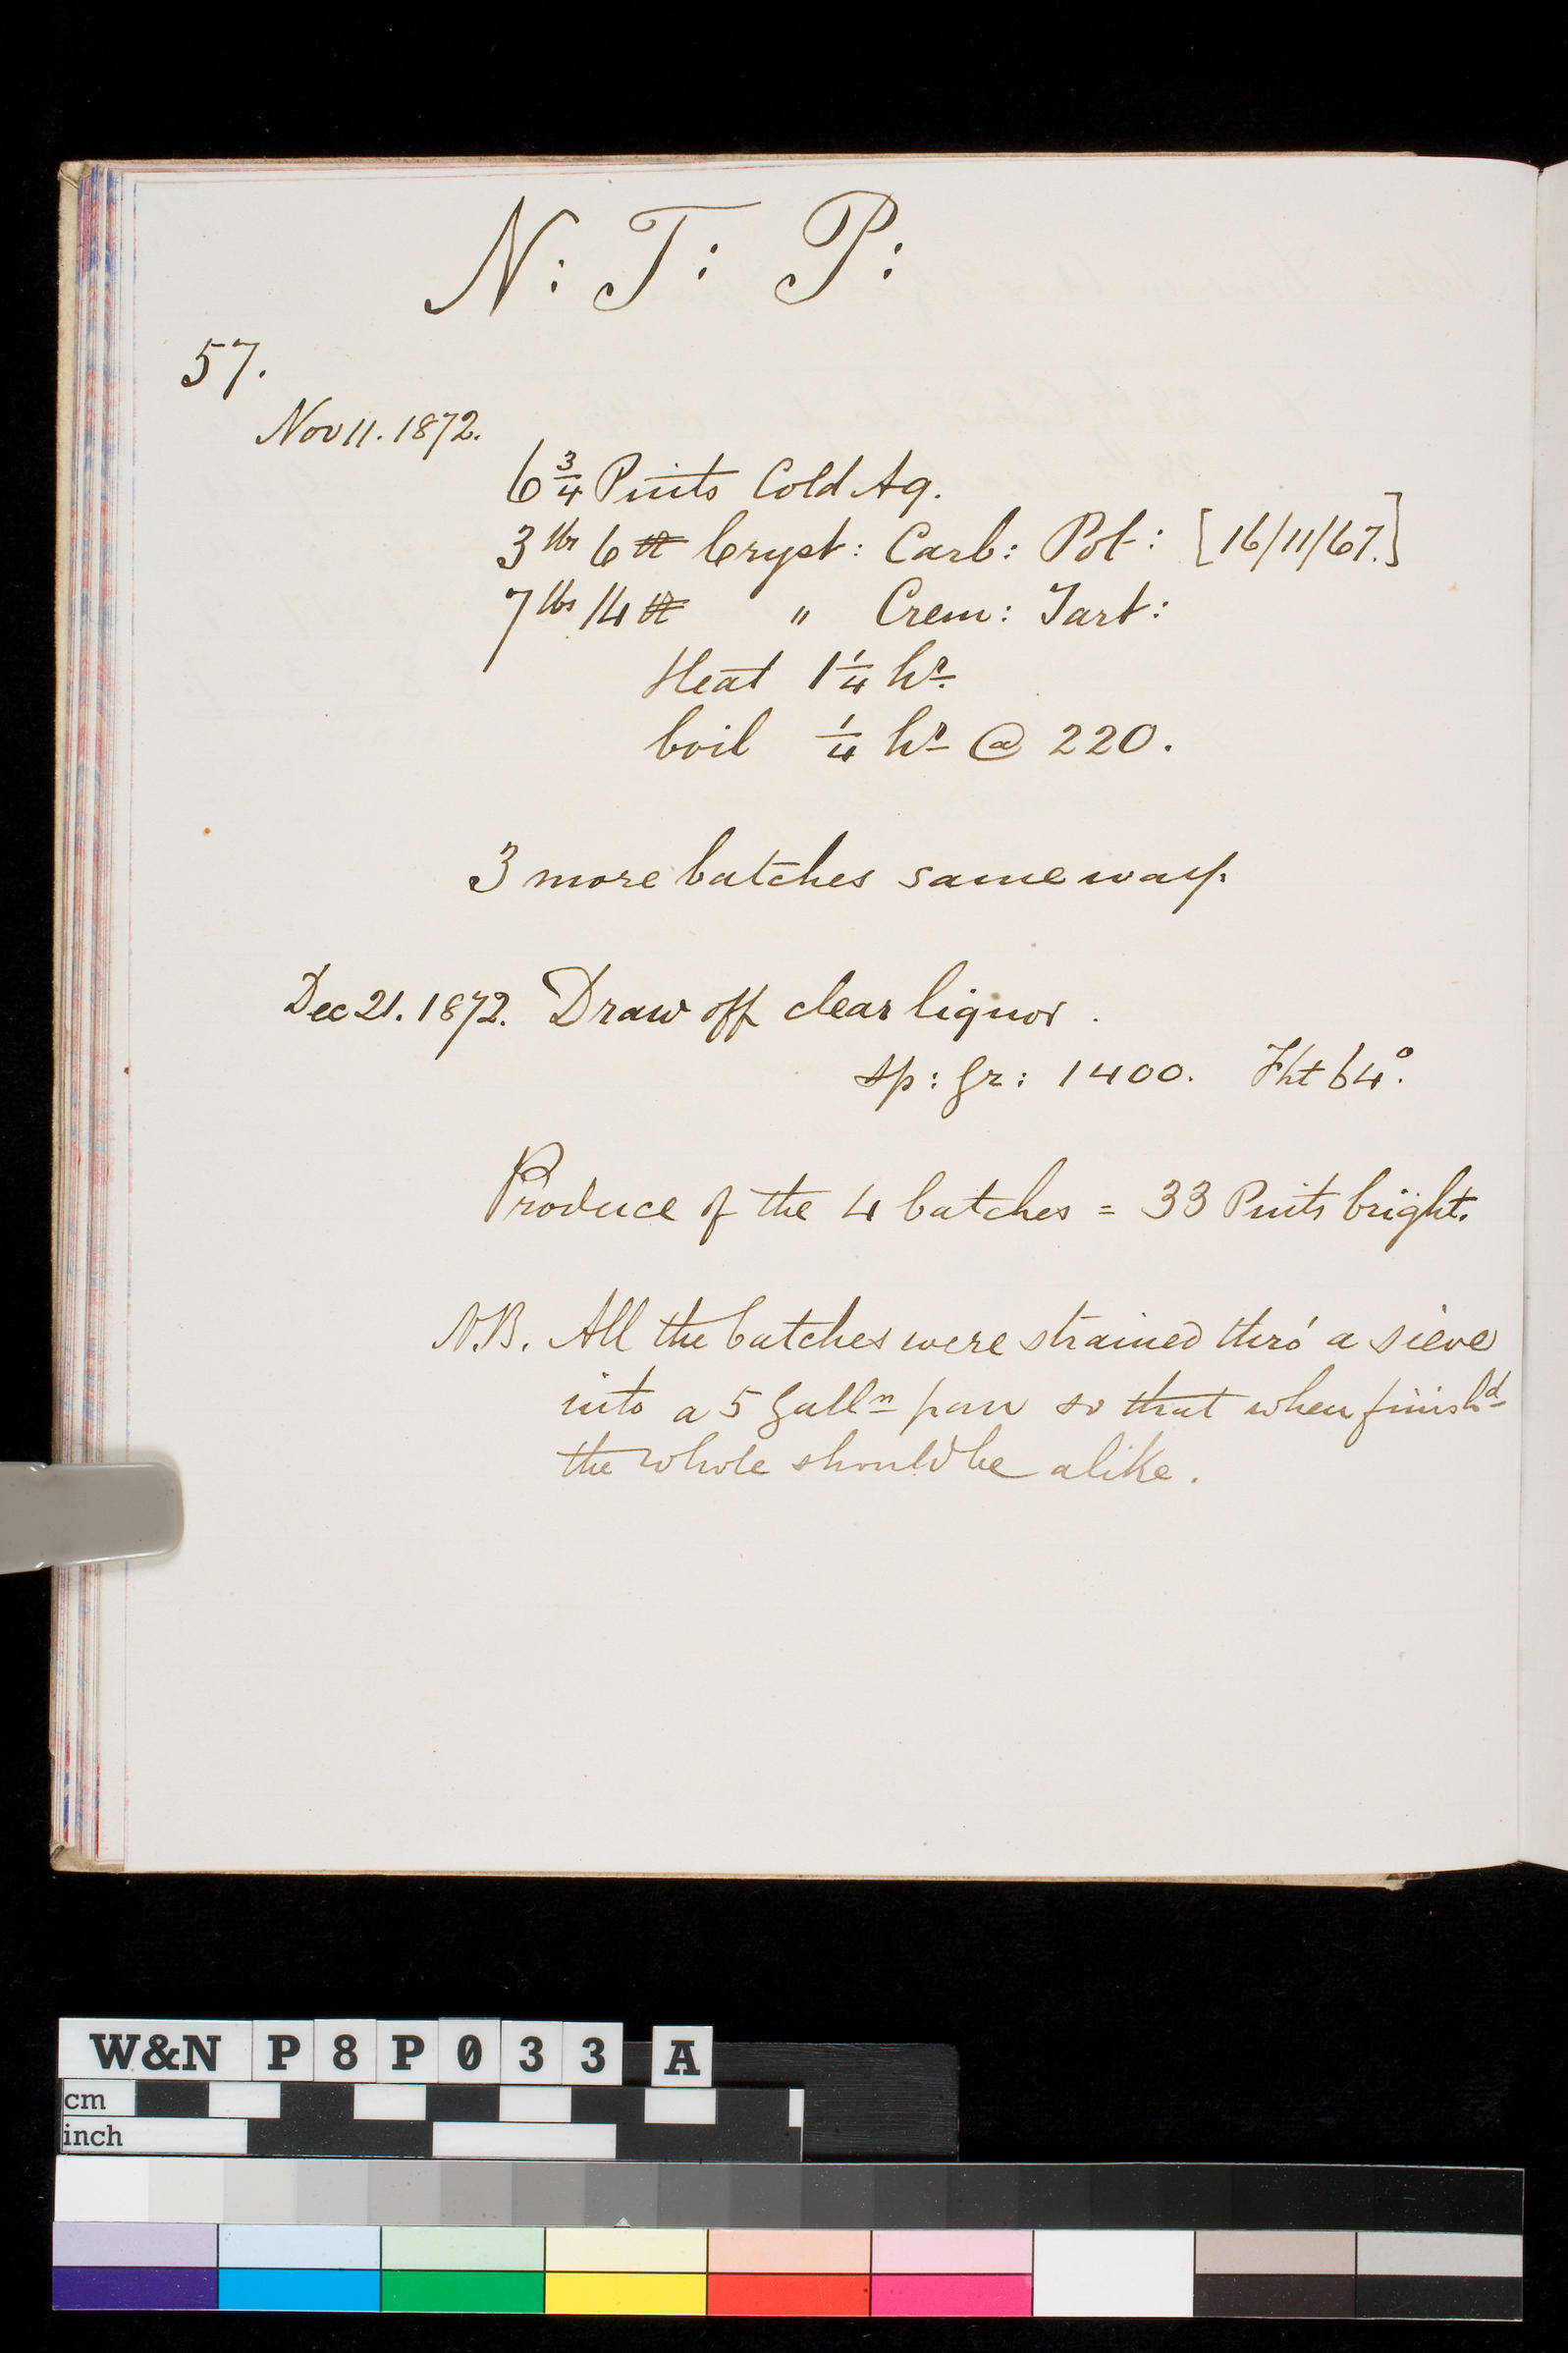 N: T: P:
57.
Nov 11. 1872.
6 3/4 Pints Cold Aq.
3 lbs 6 Cryst: Carb: Pot: [16/11/67.]
7 lbs 14 " Crem: Tart:
Heat 1 1/4 hr.
boil 1/4 hr @ 220.
3 more batches same way.
Dec 21. 1872. Draw off clear liquor.
sp: gr: 1400. Fht 64°.
Produce of the 4 batches = 33 Pints bright.
N.B. All the batches were strained thro' a sieve
into a 5 Galln pan so that when finishd
the whole should be alike.
W&N P8P033 A
cm
inch